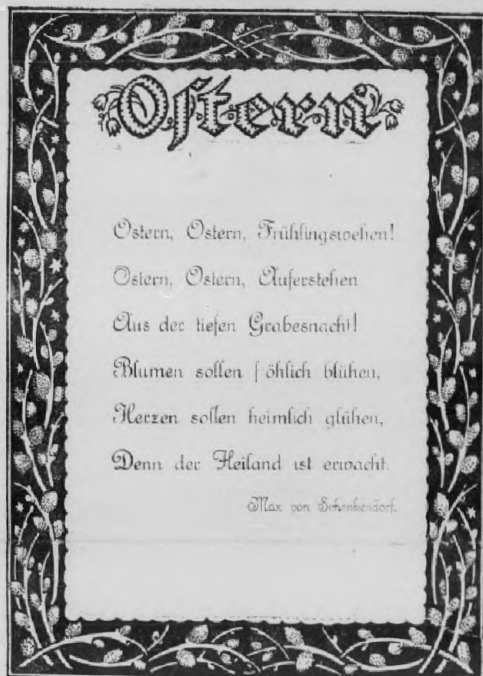 Ostern
Ostern, Ostern, Frühlingswehen!
Ostern, Ostern, Auferstehen
Aus der tiefen Grabesnacht!
Blumen sollen f öhlich blühen,
Herzen sollen heimlich glühen,
Denn der Heiland ist erwacht.
Max von Schenkendorf.